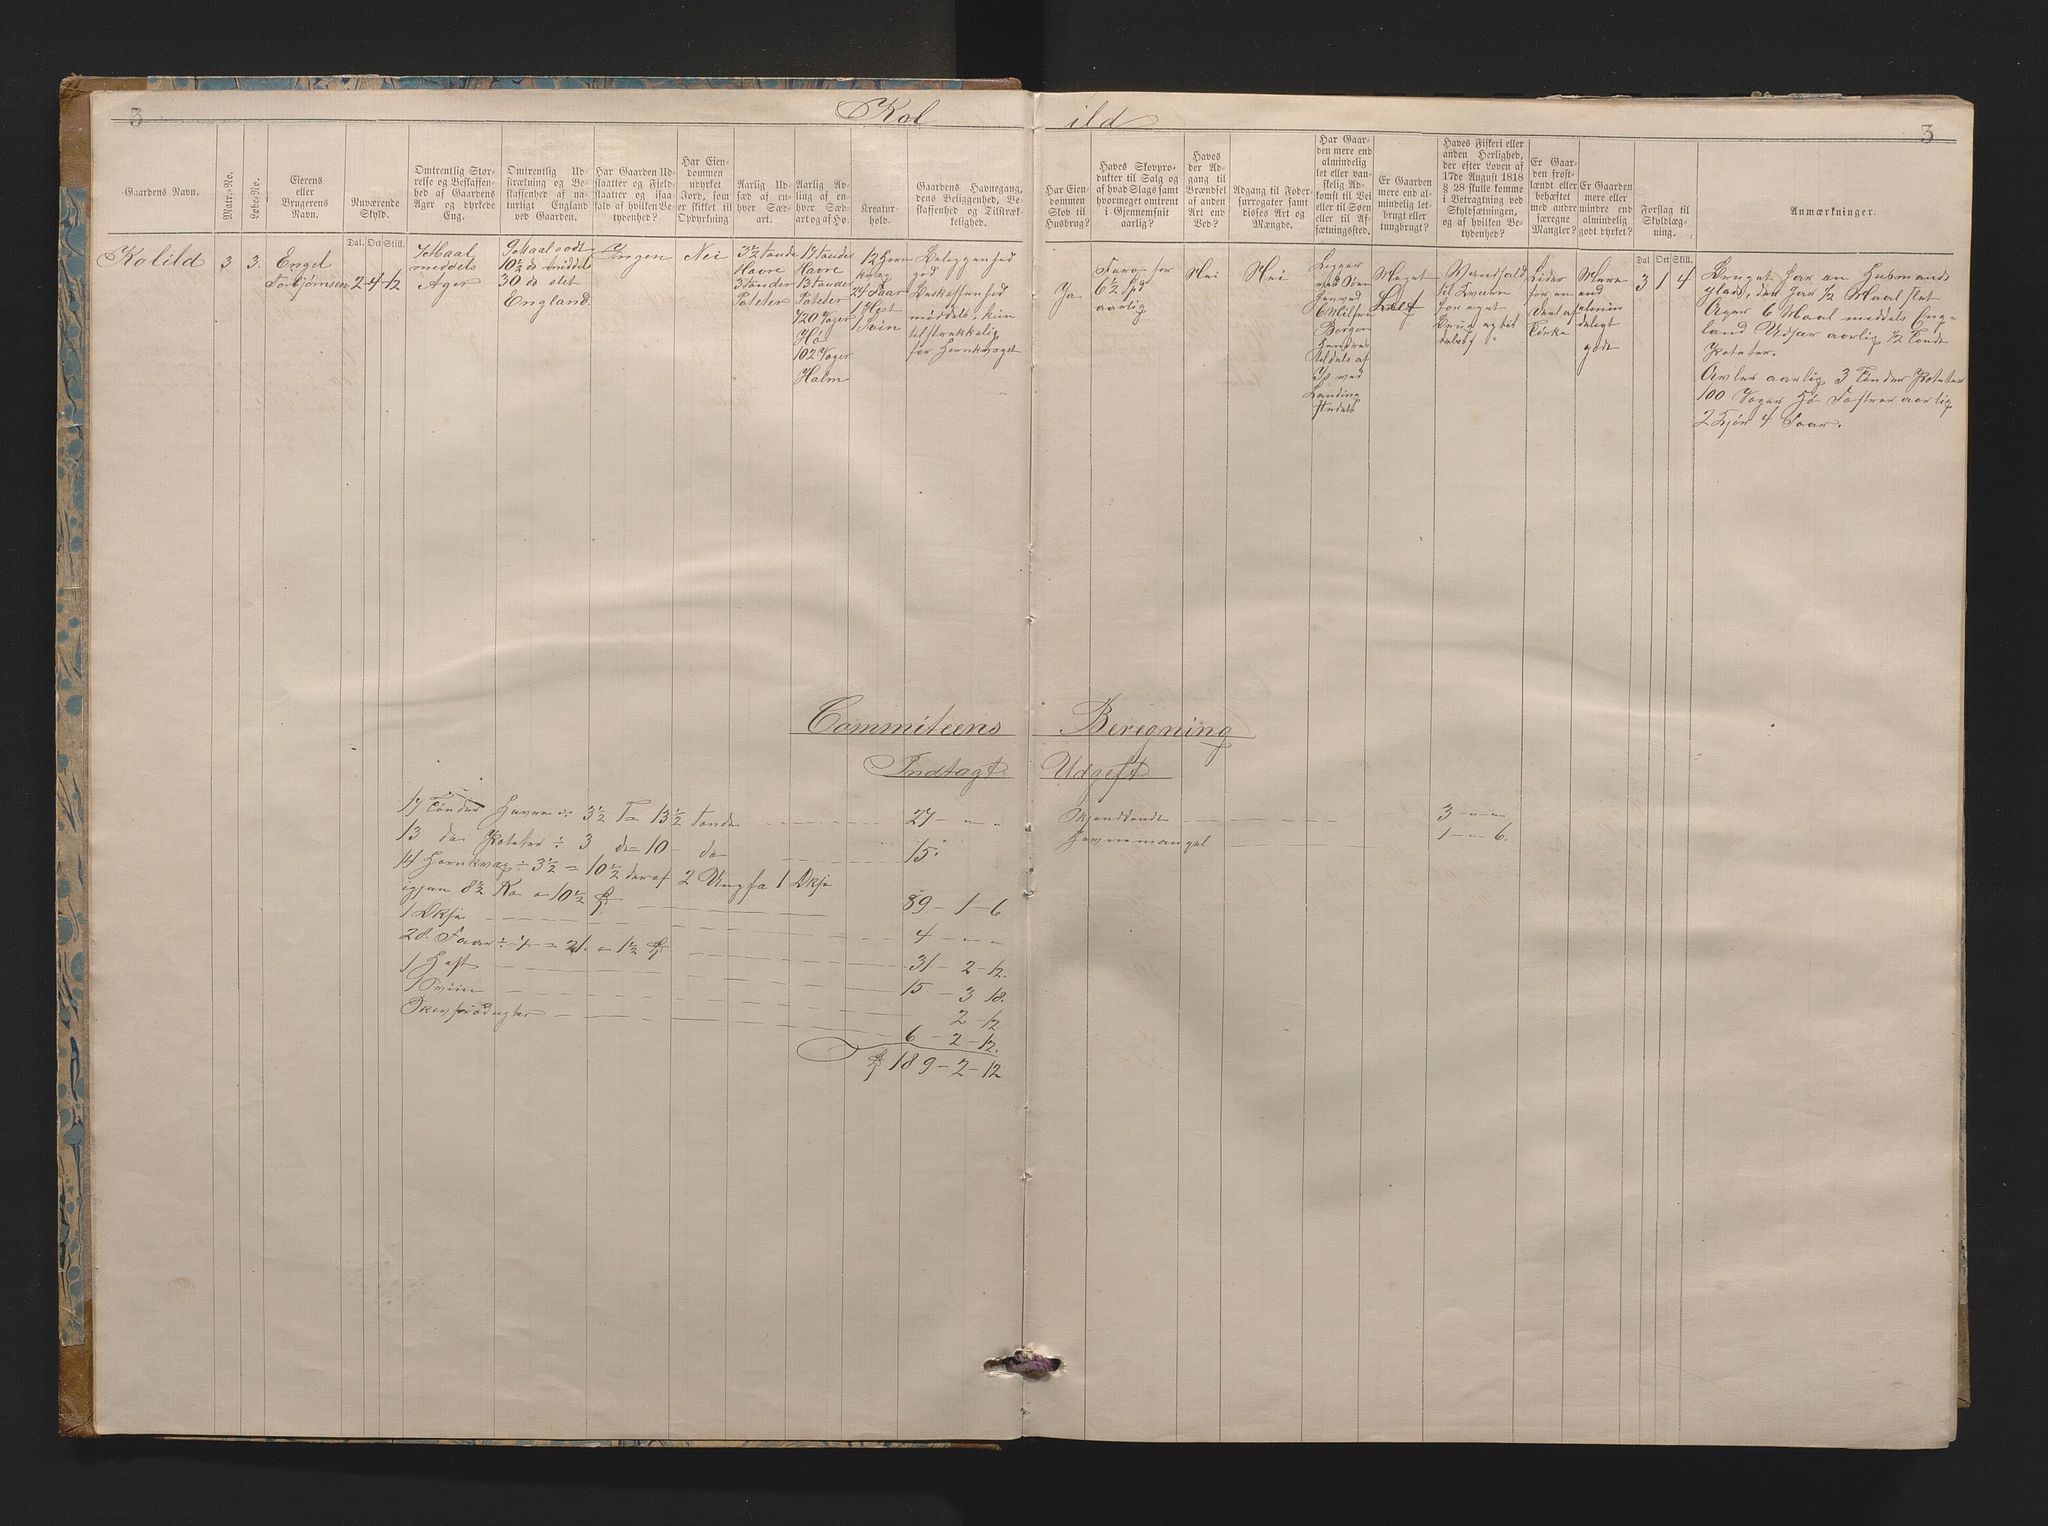 3
Kol
ild
3
Gaardens Navn.
Matr.-No.
Løbe-No.
Eierens
eller
Brugerens
Navn.
Nuværende
Skyld.
Omtrentlig Stør-
relse og Beskaffen-
hed af Gaardens
Ager og dyrkede
Eng.
Omtrentlig Ud-
strækning og Be-
skaffenhed af na-
turligt England
ved Gaarden.
Har Gaarden Ud-
slaatter og Fjeld-
slaatter og isaa-
fald af hvilken Be-
tydenhed?
Har Eien-
dommen
udyrket
Jord, som
er skikket til
Opdyrkning?
Aarlig Ud-
sæd af en-
hver Sæd-
art.
Aarlig Av-
ling af en-
hver Sæd-
art og af Hø.
Kreatur-
hold.
Gaardens Havnegang,
dens Beliggenhed, Be-
skaffenhed og Tilstræk-
kelighed.
Har Eien-
dommen
Skov til
Husbrug?
Haves Skovpro-
dukter til Salg og
af hvad Slags samt
hvormeget omtrent
i Gjennemsnit
aarlig?
Haves
der Ad-
gang til
Brændsel
af anden
Art end
Ved?
Adgang til Foder-
surrogater samt
disses Art og
Mængde.
Har Gaar-
den mere end
almindelig
let eller van-
skelig Ad-
komst til Vei
eller til Søen
eller til Af-
sætningssted.
Er Gaarden
mere end al-
mindelig let-
brugt eller
tungbrugt?
Haves Fiskeri eller
anden Herlighed,
der efter Loven af
17de August 1818
§ 28 skulle komme
i Betragtning ved
Skyldsætningen,
og af hvilken Be-
tydenhed?
Er Gaar-
den frost-
lændt eller
behæftet
med andre
særegne
Mangler?
Er Gaarden
mere eller
mindre end
almindelig
godt dyrket?
Forslag til
Skyldlæg-
ning.
Anmærkninger.
Dal. Ort Still.
Dal Ort Still.
Kolild 3 3. Engel
Torbjørnsen 2 4 12
7 Maal
middels
Ager
9 Maal godt
10½ do middels
30 do slet
England.
Ingen
Nei
3½ Tønde
Havre
3 Tønder
Poteter
17 Tønder
Havre
13 Tønder
Poteter
720 Voger
Hø
102 Voger
Halm
12 Horn
kvæg
24 Faar
1 Hest
1 Sviin
Beliggenhed
god
Beskaffenhed
middels, kun
tilstrækkelig
for Hornkvæget
Ja
Furu for
6½ Spd
aarlig
Nei
Nei
Ligger
ved Søen
6 Mil fra
Bergen
tildels af
Is ved
Landing
stedet
Meget
Let
Vandfald
til Kværn
for eget
Brug
Lider
for en
Deel af
Tørke
Mere
end
almin
deligt
godt
3 1 4
Bruget har en Husmands
plads, der har ½ Maal slet
Ager 6 Maal middels Eng-
land Udsær aarlig ½ Tønde
Poteter.
Avler aarlig 3 Tønder Poteter
100 Voger Hø Fostrer aarlig
2 Kjør 4 Faar.
Commiteens Beregning
Indtægt Udgift
17 Tønder Havre ÷ 3½ T = 13½ Tønde 27 - " - "
13 do Poteter ÷ 3 do = 10 - do 15.
14 Hornkvæg ÷ 3½ = 10½ deraf 2 Ungfæ 1 Okse
igjen 8½ Ko a 10½ 89 - 1 - 6
1 Okse 4 - " - "
28. Faar ÷ 7 = 21. a 1½ 31 - 2 - 12.
1 Hest 15. - 3 18.
1 Sviin 2 - 12
Skovprodugter 6 - 2 - 12.
189 - 2 - 12
3 - " - "
Havnemangel 1 - " - 6.